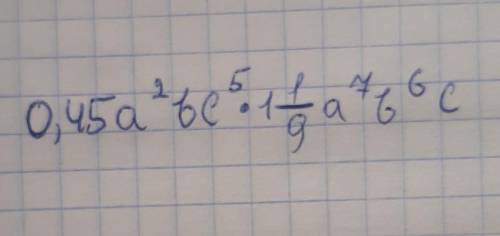 0,45a²bc⁵·1 1/9 a⁷b⁶c